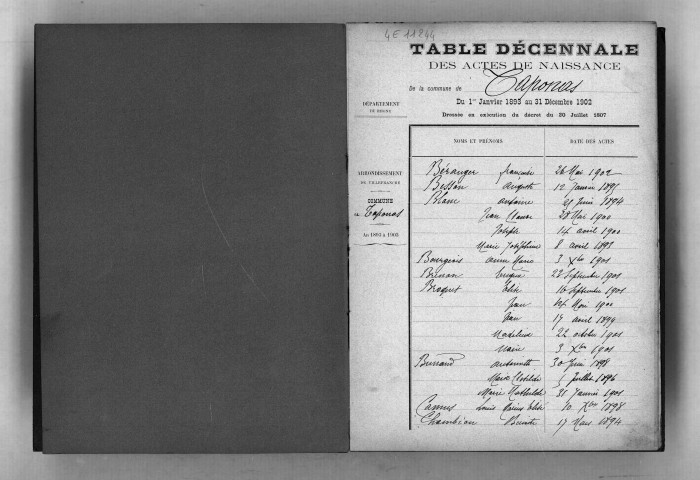 4E 11844
TABLE DÉCENNALE
DES ACTES DE NAISSANCE
De la commune de Taponas
Du 1er Janvier 1893 au 31 Décembre 1902
Dressée en exécution du décret du 20 Juillet 1807
DÉPARTEMENT
DU RHONE
ARRONDISSEMENT
DE VILLEFRANCHE
COMMUNE
de Taponas
An 1893 à 1903
NOMS ET PRÉNOMS DATE DES ACTES
Béranger françoise 26 Mai 1902
Besson Auguste 12 Janvier 1895
Blanc antoine 21 Juin 1894
Jean Claude 28 Mai 1900
Joseph 14 avril 1900
Marie Joséphine 8 avril 1893
Bourgeois anne Marie 3 Xbre 1901
22 Septembre 1901
Braquet Elise 16 Septembre 1901
Jean 1901
Jean 17 avril 1899
Madeleine 22 octobre 1901
Marie 3 Xbre 1901
antoinette 30 Juin 1898
Marie Clotilde Juillet 1896
Marie Mathilde 31 Janvier 1901
Camus Louis 10 Xbre 1898
Chambion Benoite 17 Mars 1894